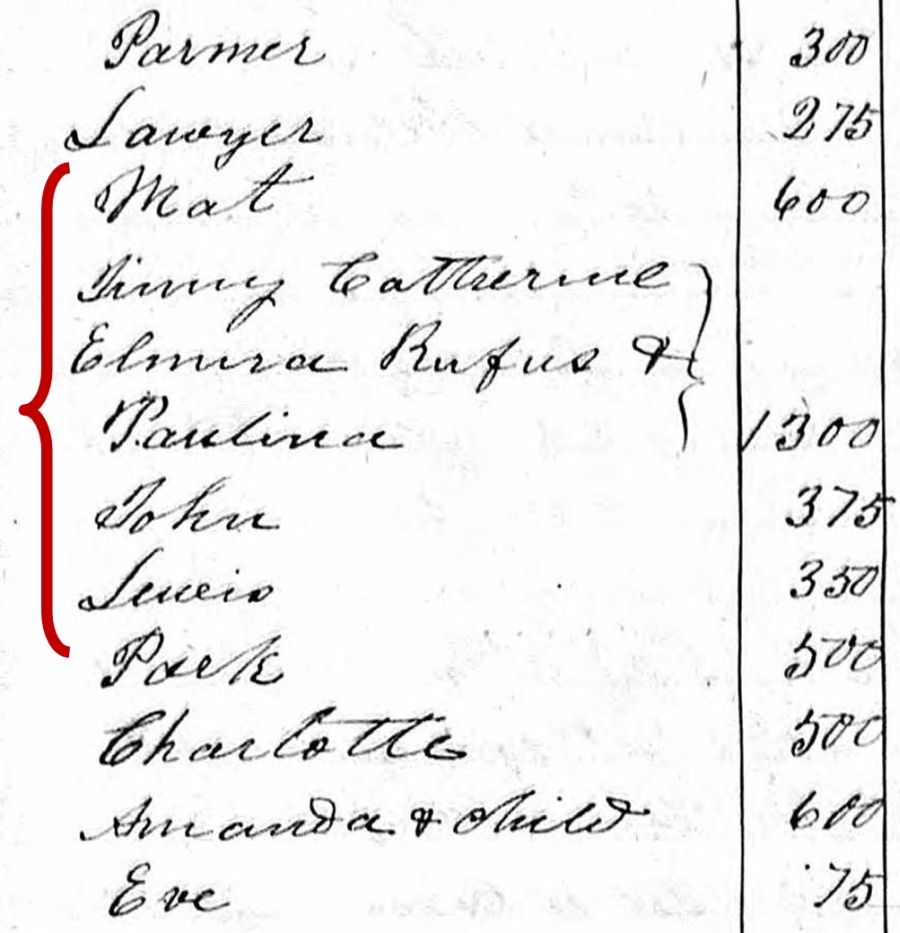 Parmer 300
Lawyer 275
Mat 600
Jinny Cattherine
Elmira Rufus &
Paulina 1300
John 375
Lewis 350
Park 500
Charlotte 500
Amanda & child 600
Eve 75